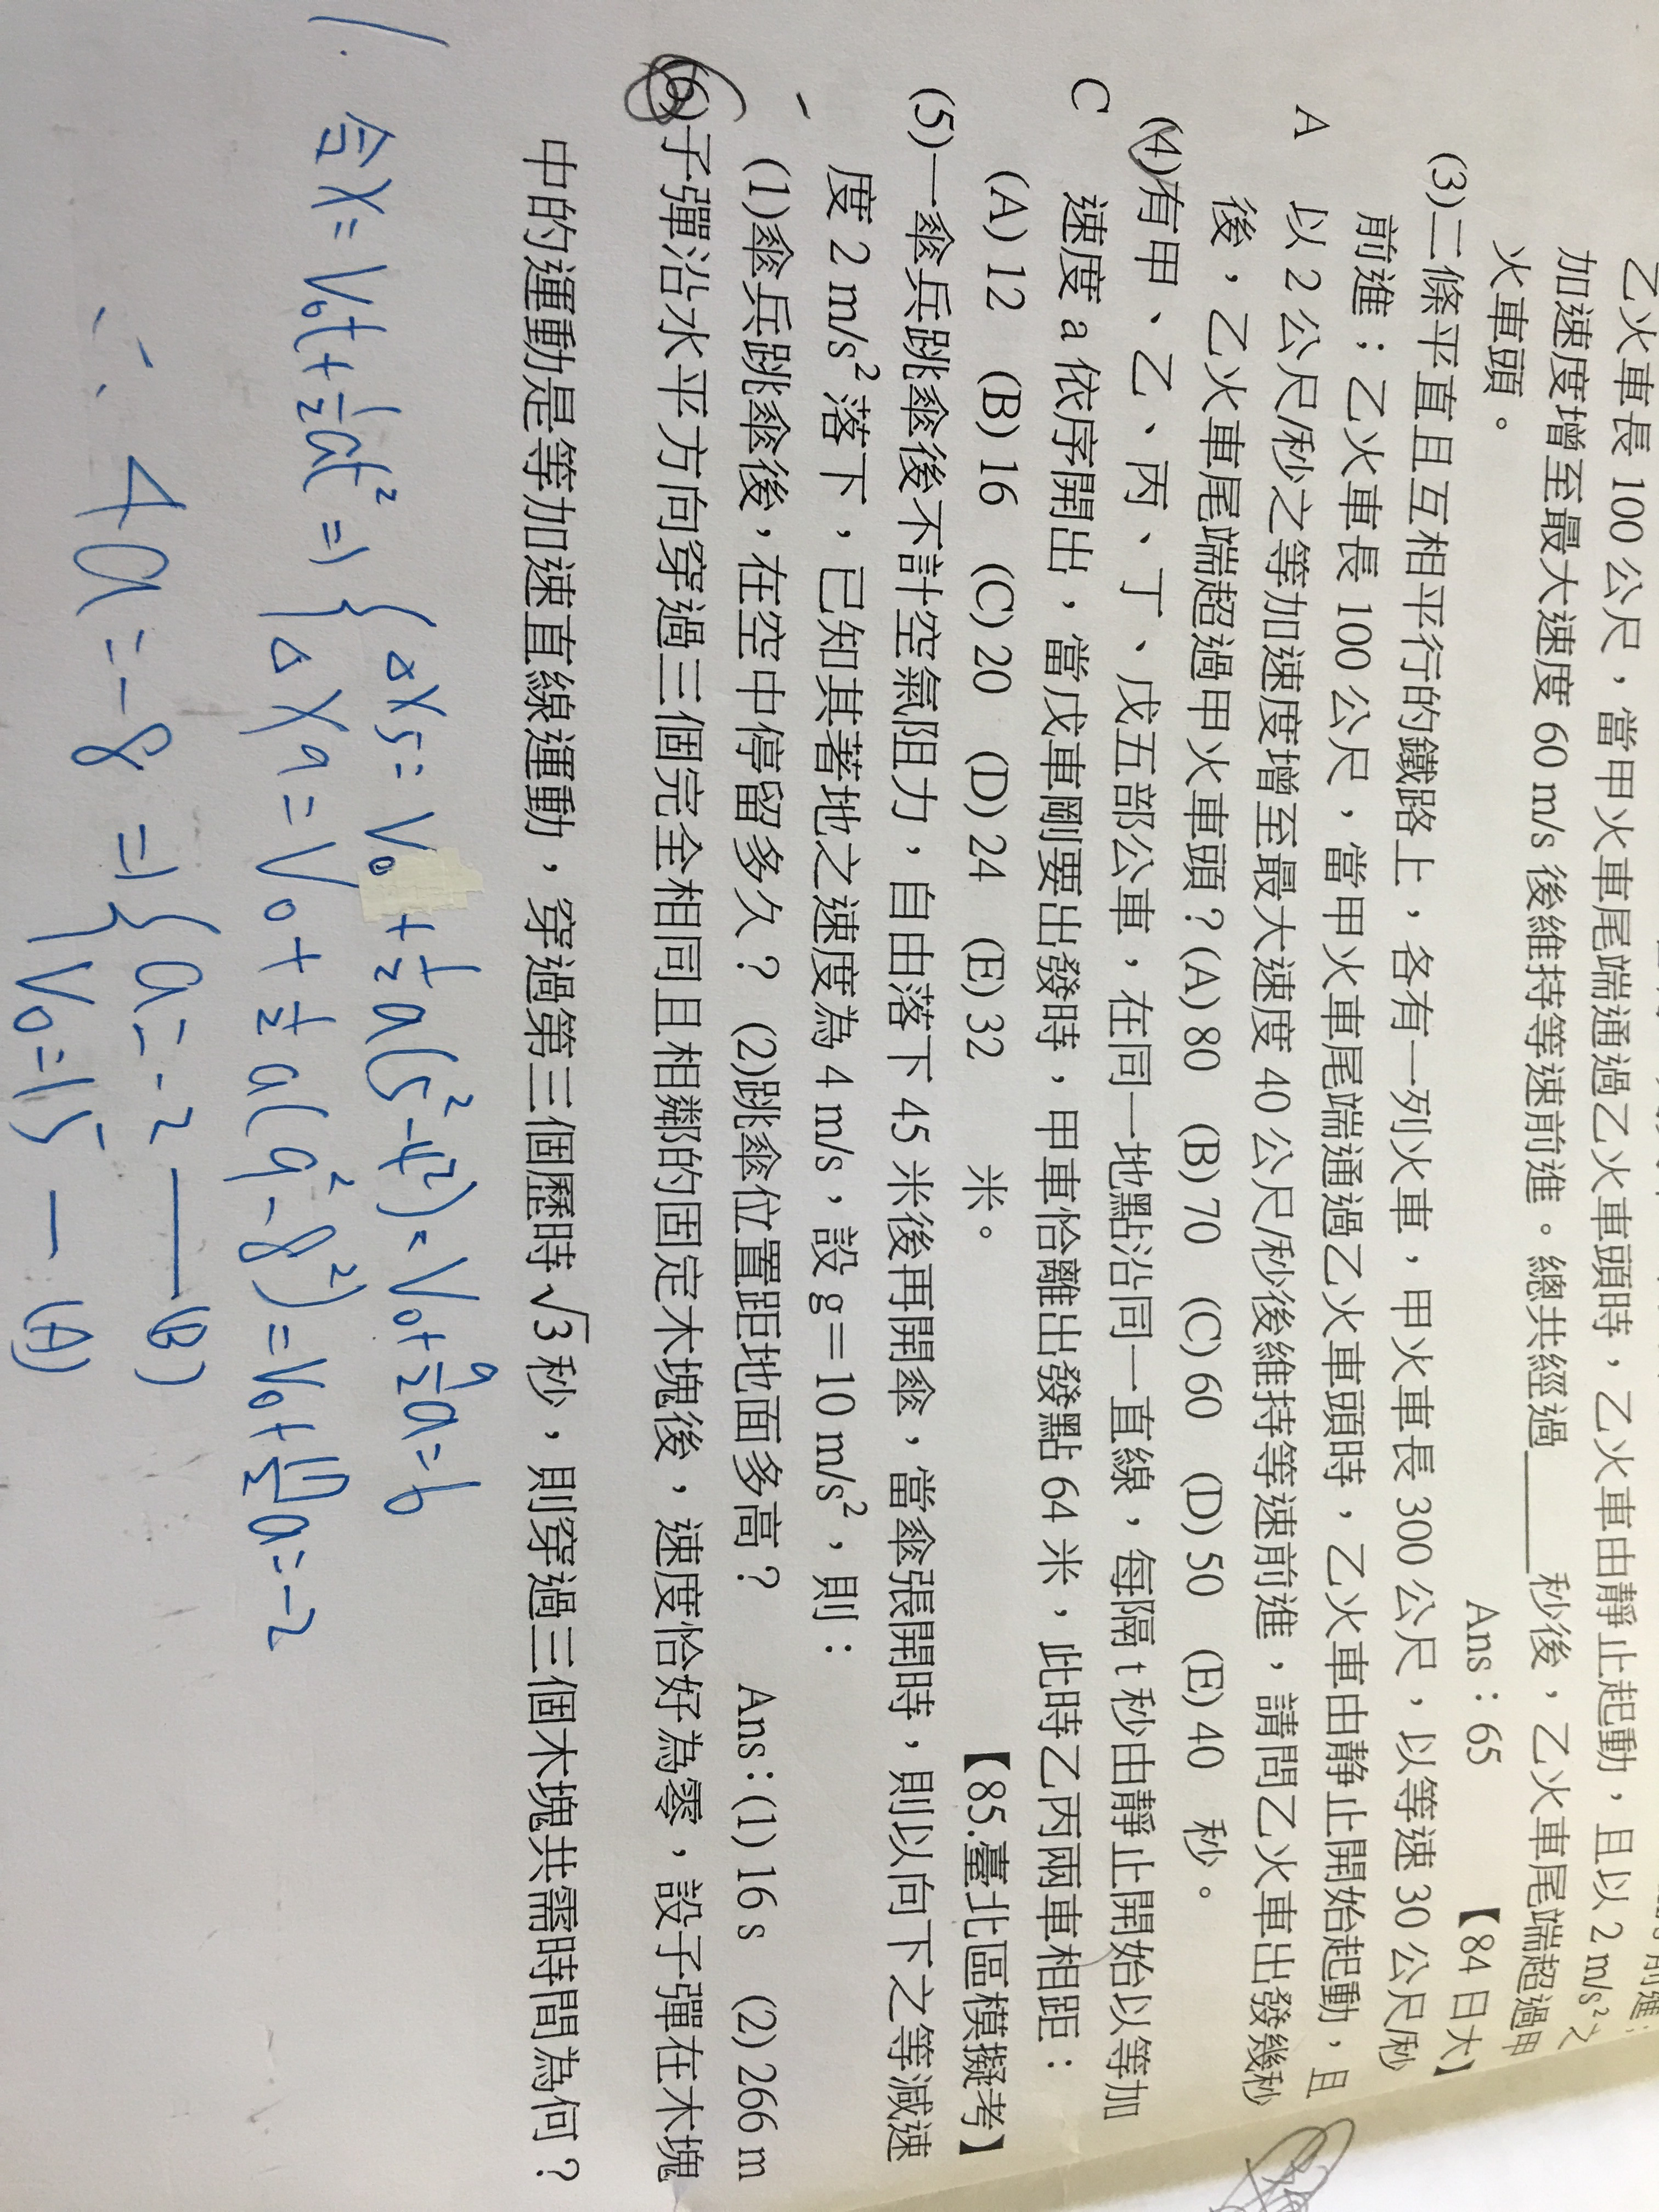 乙火車長 100 公尺，當甲火車尾端通過乙火車頭時，乙火車由靜止起動，且以 2 m/s² 之
加速度增至最大速度 60 m/s 後維持等速前進。總共經過______秒後，乙火車尾端超過甲
火車頭。
Ans：65 【84 日大】
(3)二條平直且互相平行的鐵路上，各有一列火車，甲火車長 300 公尺，以等速 30 公尺/秒
前進；乙火車長 100 公尺，當甲火車尾端通過乙火車頭時，乙火車由靜止開始起動，且
A 以 2 公尺/秒之等加速度增至最大速度 40 公尺/秒後維持等速前進，請問乙火車出發幾秒
後，乙火車尾端超過甲火車頭？(A) 80 (B) 70 (C) 60 (D) 50 (E) 40 秒。
(4)有甲、乙、丙、丁、戊五部公車，在同一地點沿同一直線，每隔 t 秒由靜止開始以等加
C 速度 a 依序開出，當戊車剛要出發時，甲車恰離出發點 64 米，此時乙丙兩車相距：
(A) 12 (B) 16 (C) 20 (D) 24 (E) 32 米。 【85.臺北區模擬考】
(5)一傘兵跳傘後不計空氣阻力，自由落下 45 米後再開傘，當傘張開時，則以向下之等減速
度 2 m/s² 落下，已知其著地之速度為 4 m/s，設 g＝10 m/s²，則：
(1)傘兵跳傘後，在空中停留多久？ (2)跳傘位置距地面多高？ Ans：(1) 16 s (2) 266 m
(6)子彈沿水平方向穿過三個完全相同且相鄰的固定木塊後，速度恰好為零，設子彈在木塊
中的運動是等加速直線運動，穿過第三個歷時 √3 秒，則穿過三個木塊共需時間為何？
1. 令 X = V₀t + ½at² ⇒ { ΔX₅ = V₀ + ½a(5²-4²) = V₀ + 9/2 a = 6
ΔX₉ = V₀ + ½a(9²-8²) = V₀ + 17/2 a = -2
∴ 4a = -8 ⇒ { a = -2 —— (B)
V₀ = 15 — (A)